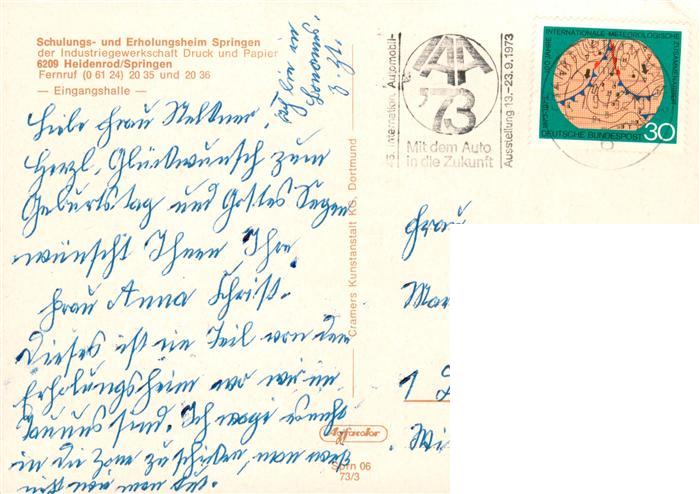 Schulungs- und Erholungsheim Springen
der Industriegewerkschaft Druck und Papier
6209 Heidenrod/Springen
Fernruf (0 61 24) 20 35 und 20 36
— Eingangshalle —
z. Zt.
Ich bin in
Liebe Frau
Herzl. Glückwunsch zum
Geburtstag und Gottes Segen
wünscht Ihnen Ihre
Frau Anna Christ.
Dieses ist ein Teil von dem
Erholungsheim wo wir im
Taunus sind. Ich
in die Zone zu schicken, man
Cramers Kunstanstalt KG, Dortmund
Agfacolor
Sprn 06
73/3
45. Internation. Automobil-
IAA
'73
Mit dem Auto
in die Zukunft
Ausstellung 13.-23.9.1973
INTERNATIONALE METEOROLOGISCHE
ZUSAMMENARBEIT
1873-1973
100 JAHRE
DEUTSCHE BUNDESPOST 30
Frau